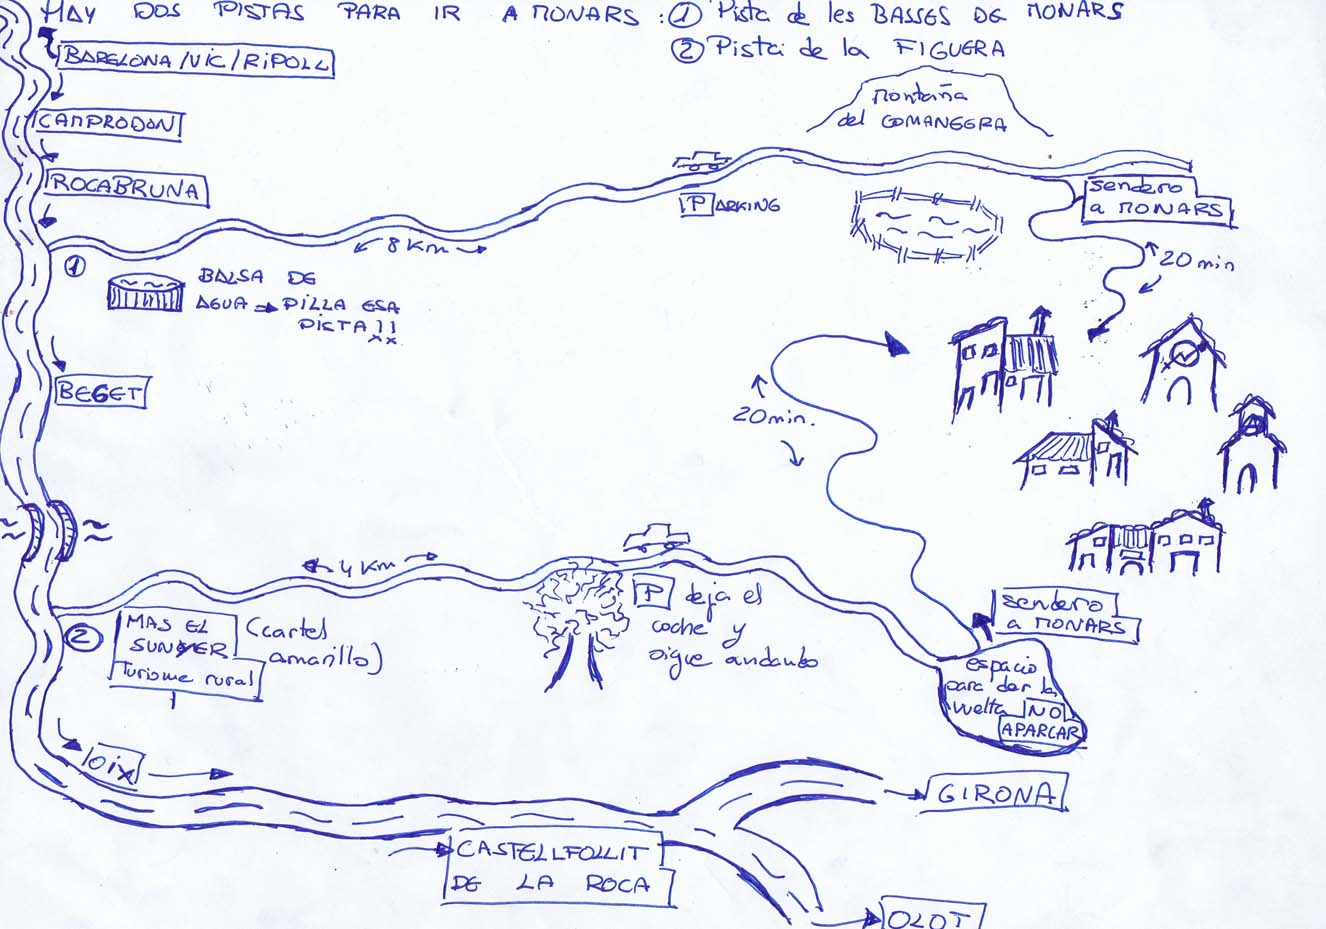 HAY DOS PISTAS PARA IR A MONARS: ① Pista de les BASSES DE MONARS
② Pista de la FIGUERA
BARELONA/VIC/RIPOLL
Montaña
del COMANEGRA
CAMPRODON
ROCABRUNA
PARKING
Sendero
a MONARS
8 Km
①
20 min
BALSA DE
AGUA → PILLA ESA
PISTA!!
BEGET
20 min.
4 Km
②
MAS EL
SUNYER
Turisme rural
(cartel
amarillo)
P deja el
coche y
sigue andando
sendero
a MONARS
espacio
para dar la
vuelta NO
APARCAR
OIX
GIRONA
CASTELLFOLLIT
DE LA ROCA
OLOT